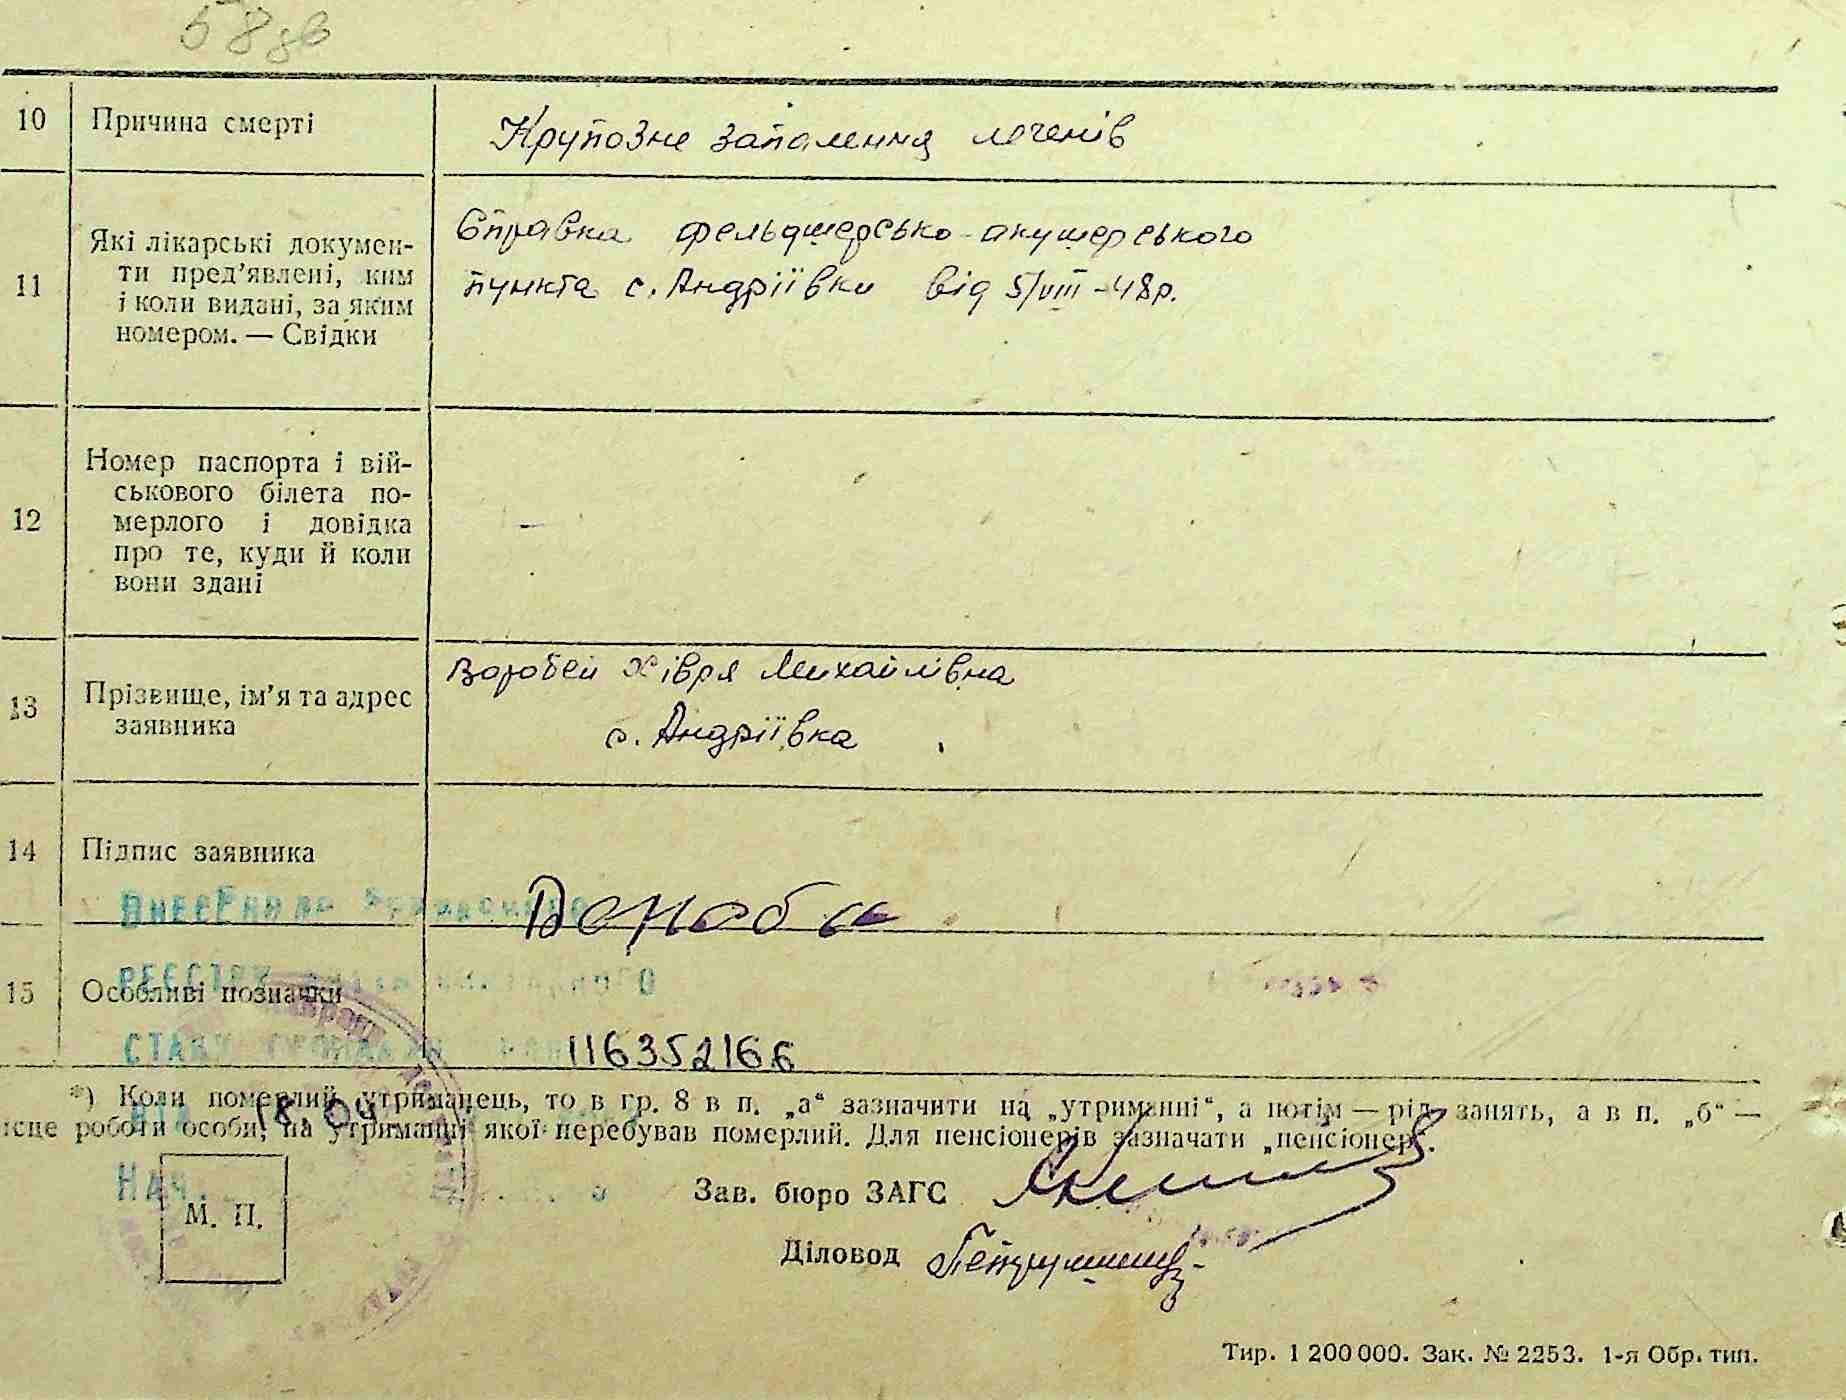 58 зв
10 Причина смерті Крупозне запалення легенів
11 Які лікарські докумен-
ти пред’явлені, ким
і коли видані, за яким
номером. — Свідки
Справка фельдшерсько-акушерського
пункта с. Андріївки від 5/VIII-48р.
12 Номер паспорта і вій-
ськового білета по-
мерлого і довідка
про те, куди й коли
вони здані
—
13 Прізвище, ім’я та адрес
заявника
Воробей Хівря Михайлівна
с. Андріївка
14 Підпис заявника
Внесено до Державного
РЕЄСТРУ
15 Особливі позначки
СТАНУ ГРОМАДЯН 116352166
*) Коли померлий утриманець, то в гр. 8 в п. „а“ зазначити на „утриманні“, а потім — рід занять, а в п. „б“ —
ісце роботи особи, на утриманні якої перебував померлий. Для пенсіонерів зазначати „пенсіонер“.
18 04
Нач.
М. П.
Зав. бюро ЗАГС
Діловод
Тир. 1 200 000. Зак. № 2253. 1-я Обр. тип.